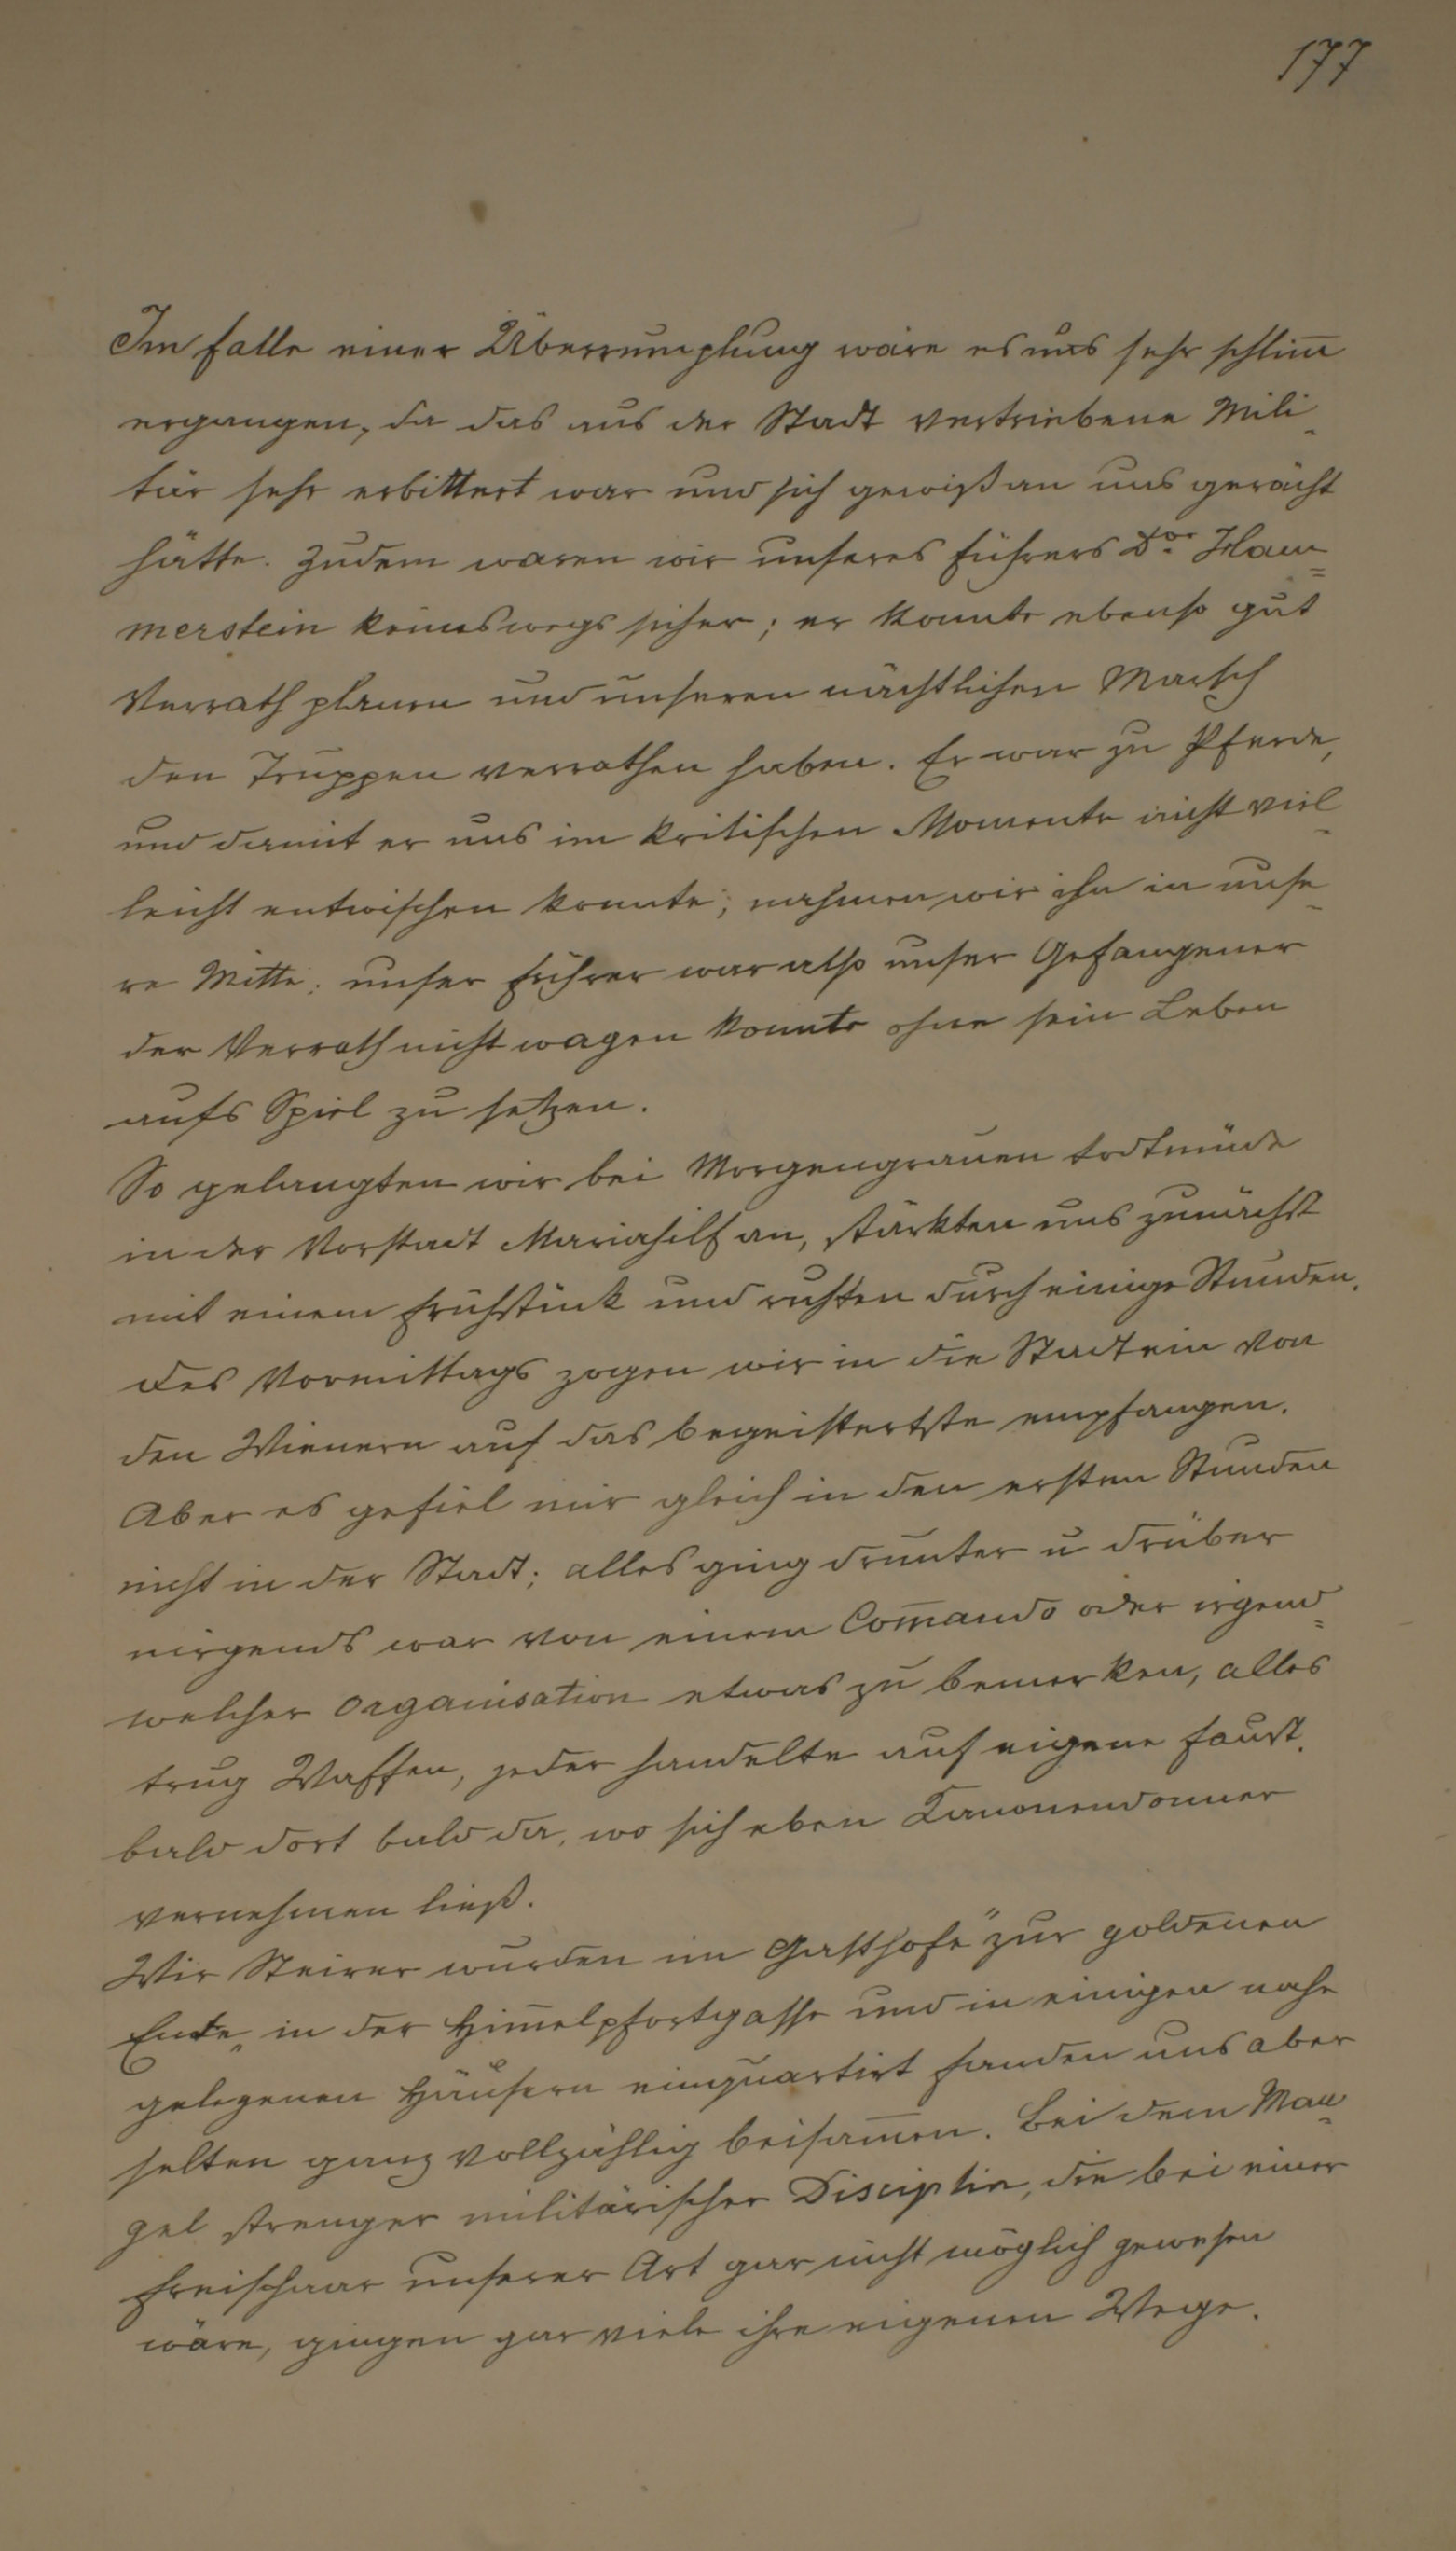 177
Im Falle einer Überrumplung wäre es uns sehr schlim̅
ergangen, da das aus der Stadt vertriebene Mili-
tär sehr erbittert war und sich gewiß an uns gerächt
hätte. Zudem waren wir unseres Führers Dor. Ham=
merstein keineswegs sicher; er konnte ebenso gut
Verrath planen und unseren nächtlichen Marsch
den Truppen verrathen haben. Er war zu Pferde,
und damit er uns im kritischen Momente nicht viel-
leicht entwischen konnte; nahmen wir ihn in unse-
re Mitte; unser Führer war also unser Gefangener
der Verrath nicht wagen konnte ohne sein Leben
aufs Spiel zu setzen.
So gelangten wir bei Morgengrauen todtmüde
in der Vorstadt Mariahilf an, stärkten uns zunächst
mit einem Frühstück und ruhten durch einige Stunden.
Des Vormittags zogen wir in die Stadt ein von
den Wienern auf das begeistertste empfangen.
Aber es gefiel mir gleich in den ersten Stunden
nicht in der Stadt; alles ging drunter u drüber
nirgends war von einem Com̅ando oder irgend=
welcher Organisation etwas zu bemerken, alles
trug Waffen, jeder handelte auf eigene Faust,
bald dort bald da, wo sich eben Kanonendonner
vernehmen ließ.
Wir Steirer wurden im Gasthofe "zur goldenen
Ente„ in der Him̅elpfortgasse und in einigen nahe
gelegenen Häusern einquartirt fanden uns aber
selten ganz vollzählig beisam̅en. Bei dem Man-
gel strenger militärischer Disciplin, die bei einer
Freischaar unserer Art gar nicht möglich gewesen
wäre, gingen gar viele ihre eigenen Wege.